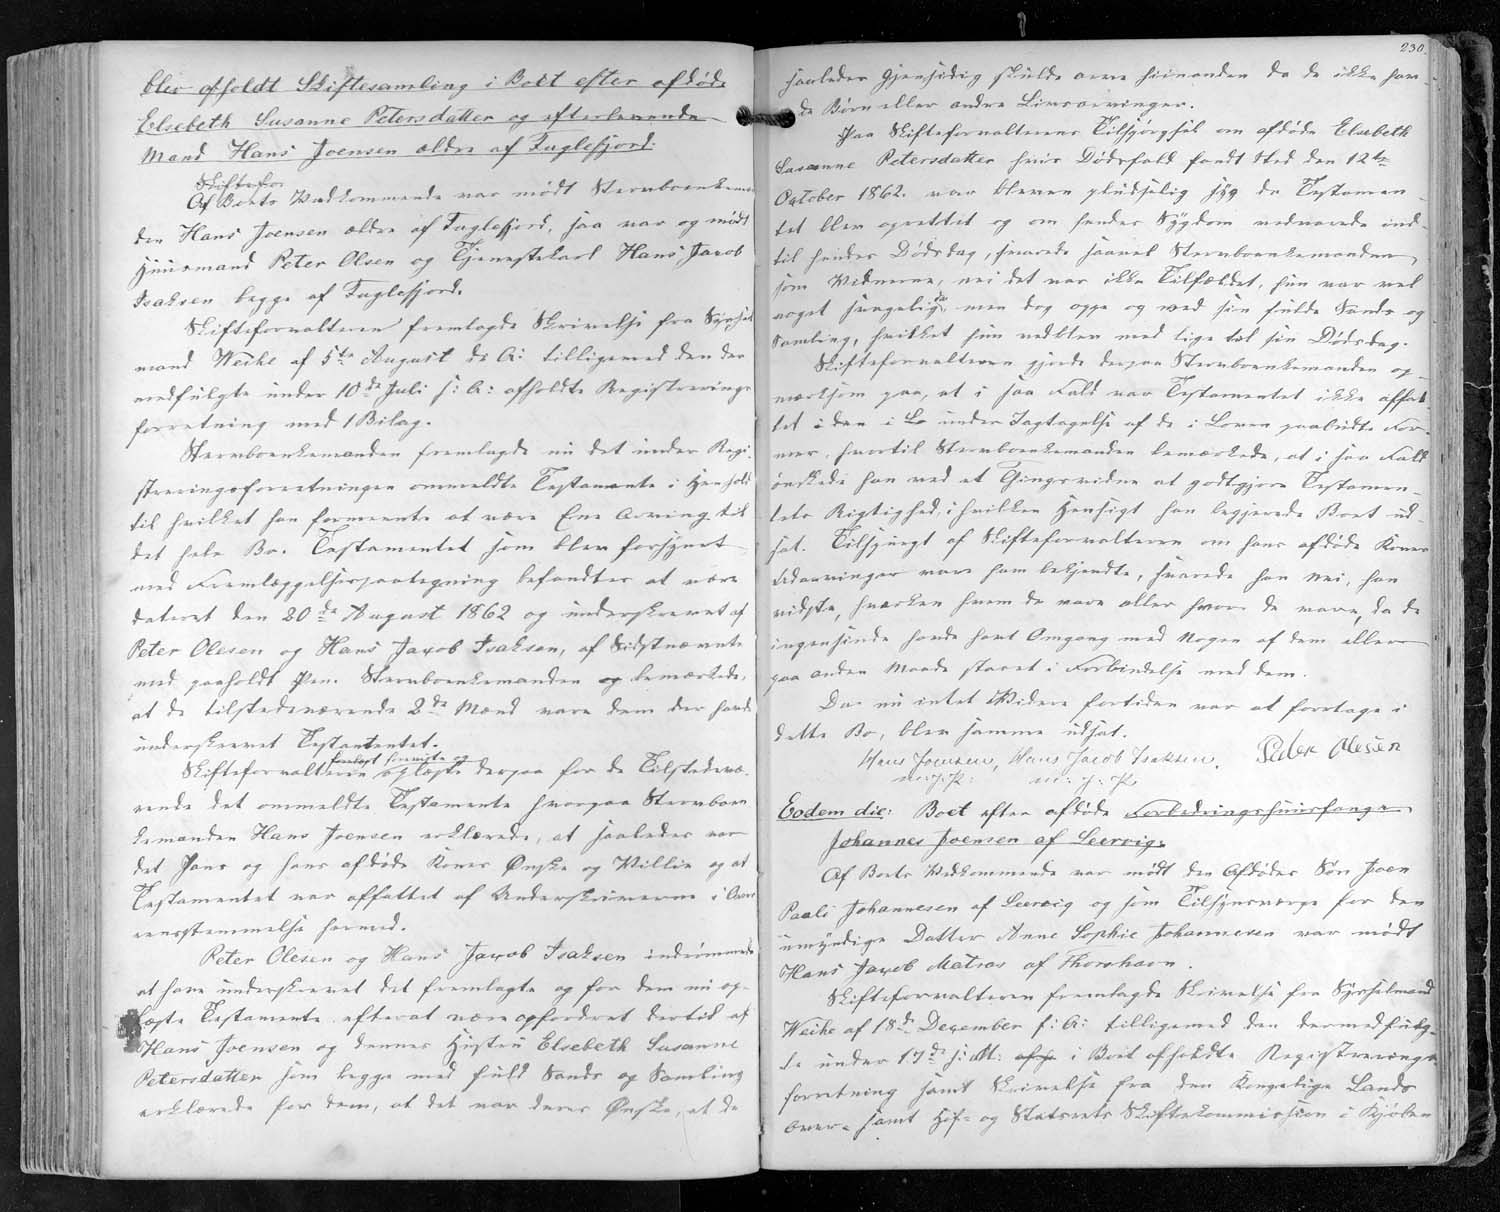 blev afholdt Skiftesamling i Boet efter afdøde
Elsebeth Susanne Petersdatter og efterlevende
Mand Hans Joensen ældre af Fuglefjord.
Skiftefor
Af Boets Vedkommende var mødt Stervboenkeman
den Hans Joensen ældre af Fuglefjord, saa var og mødt
Huusmand Peter Olsen og Tjenestekarl Hans Jacob
Isaksen begge af Fuglefjord.
Skifteforvalteren fremlagde Skrivelse fra Syssel
mand Weihe af 5te August d: A: tilligemed den der
medfulgte under 10de Juli s: A: afholdte Registrerings
forretning med 1 Bilag.
Stervboenkemanden fremlagde nu det under Regi
streringsforretningen ommeldte Testamente i Henhold
til hvilket han formeente at være Ene Arving til
det hele Bo. Testamentet som blev forsynet
med Fremlæggelsespaategning befandtes at være
dateret den 20de August 1862 og underskrevet af
Peter Olesen og Hans Jacob Isaksen, af Sidstnævnte
med paaholdt Pen. Stervboenkemanden og bemærkede,
at de tilstedeværende 2de Mænd vare dem der havde
underskrevet Testamentet.
foreviste og
Skifteforvalteren oplæste derpaa for de Tilstedevæ
rende det ommeldte Testamente hvorpaa Stervboen
kemanden Hans Joensen erklærede, at saaledes var
det Hans og hans afdøde Kones Ønske og Villie og at
Testamentet var affattet af Underskriverne i Over
eensstemmelse hermed.
Peter Olesen og Hans Jacob Isaksen indrømmede
at have underskrevet det fremlagte og for dem nu op-
læste Testamente efterat være opfordret dertil af
Hans Joensen og dennes Hustru Elsebeth Susanne
Petersdatter som begge med fuld Sands og Samling
erklærede for dem, at det var deres Ønske, at de
230.
saaledes gjensidig skulde arve hinanden da de ikke hav-
de Børn eller andre Livsarvinger.
Paa Skifteforvalterens Tilspørgsel om afdøde Elsebeth
Susanne Petersdatter hvis Dødsfald fandt Sted den 12te
October 1862 var bleven pludselig syg da Testamen
tet blev oprettet og om hendes Sygdom vedvarede ind-
til hendes Dødsdag, svarede saavel Stervboenkemanden,
som Vidnerne, nei det var ikke Tilfældet, hun var vel
noget svagelig, men dog oppe og ved sin fulde Sands og
Samling, hvilket hun vedblev med lige til sin Dødsdag.
Skifteforvalteren gjorde derpaa Stervboenkemanden op-
mærksom paa, at i saa Fald var Testamentet ikke affat
tet i den i Lo under Iagtagelse af de i Loven paabudte For-
mer, hvortil Stervboenkemanden bemærkede, at i saa Fald
ønskede han ved et Thingsvidne at godtgjøre Testamen-
tets Rigtighed, i hvilken Hensigt han begjerede Boet ud-
sat. Tilspurgt af Skifteforvalteren om hans afdøde Kones
Udarvinger vare ham bekjendte, svarede han nei, han
vidste, hverken hvem de vare eller hvor de vare, da de
ingensinde havde havt Omgang med Nogen af dem eller
paa anden Maade staaet i Forbindelse med dem.
Da nu intet Videre fortiden var at foretage i
dette Bo, blev samme udsat.
Hans Joensen, Hans Jacob Isaksen. Peder Olesen
m: f: P: m: f: P:
Eodem die: Boet efter afdøde Forbedringshuusfange
Johannes Joensen af Leervig.
Af Boets Vedkommende var mødt den Afdødes Søn Joen
Pauli Johannesen af Leervig og som Tilsynsværge for den
umyndige Datter Anne Sophie Johannesen var mødt
Hans Jacob Matras af Thorshavn.
Skifteforvalteren fremlagde Skrivelse fra Sysselmand
Weihe af 18de December f: A: tilligemed den dermedfulg-
te under 17de s: M: i Boet afholdte Registrerings-
forretning samt Skrivelse fra den Kongelige Lands
over- samt Hof- og Stadsrets Skiftekommission i Kjøben